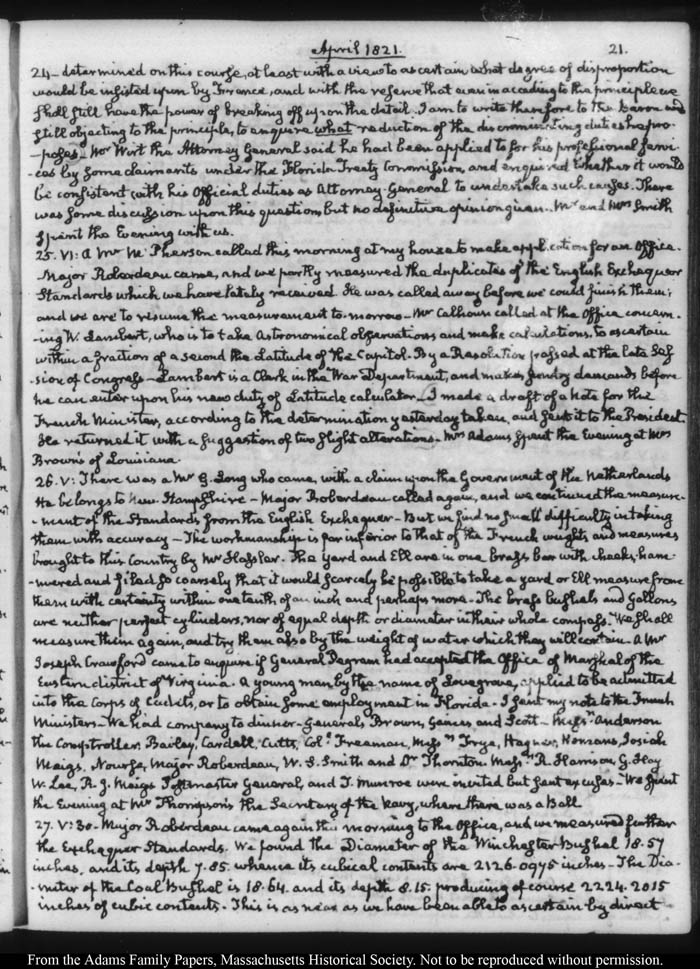 April 1821. 21.
24 – determined on this course, at least with a view to ascertain what degree of disproportion
would be insisted upon by France, and with the reserve that even in acceding to the principle we
shall still have the power of breaking off upon the detail. I am to write therefore to the Baron and
still objecting to the principle, to enquire what reduction of the discriminating duties he pro-
-poses – Mr Wirt the Attorney General said he had been applied to for his professional servi-
-ces by some claimants under the Florida Treaty Commission, and enquired whether it would
be consistent with his Official duties as Attorney-General to undertake such causes. There
was some discussion upon this question, but no definitive opinion given. Mr and Mrs Smith
spent the Evening with us.
25. VI: A Mr McPherson called this morning at my house to make application for an Office.
Major Roberdeau came, and we partly measured the duplicates of the English Exchequer
Standards which we have lately received. He was called away before we could finish them;
and we are to resume the measurement to-morrow – Mr Calhoun called at the Office concern-
-ing W. Lambert, who is to take Astronomical observations and make calculations, to ascertain
within a fraction of a second the Latitude of the Capitol. By a Resolution passed at the late Ses-
sion of Congress – Lambert is a Clerk in the War Department, and makes sundry demands before
he can enter upon his new duty of Latitude calculator. I made a draft of a Note for the
French Minister, according to the determination yesterday taken, and sent it to the President.
He returned it with a suggestion of two slight alterations – Mrs Adams spent the Evening at Mrs
Brown's of Louisiana.
26. V: There was a Mr G. Long who came, with a claim upon the Government of the Netherlands
He belongs to New-Hampshire – Major Roberdeau called again, and we continued the measure-
-ment of the Standards from the English Exchequer – But we find no small difficulty in taking
them with accuracy – The workmanship is far inferior to that of the French weights, and measures
brought to this Country by Mr Hassler. The yard and Ell are in one brass bar with cheeks, ham-
-mered and filed so coarsely that it would scarcely be possible to take a yard or Ell measure from
them with certainty within one tenth of an inch and perhaps more – The brass bushels and Gallons
are neither perfect cylinders, nor of equal depth or diameter in their whole compass. We shall
measure them again, and try them also by the weight of water which they will contain – A Mr
Joseph Crawford came to enquire if General Pegram had accepted the Office of Marshal of the
Eastern district of Virginia. A young man by the name of Lovegrove, applied to be admitted
into the Corps of Cadets, or to obtain some employment in Florida – I sent my note to the French
Minister – We had company to dinner – Generals Brown, Gaines and Scott – Messrs Anderson
the Comptroller, Bailey, Cardell, Cutts, Coll Freeman, Messrs Frye, Hagner, Homans, Josiah
Meigs, Nourse, Major Roberdeau, W. S. Smith and Dr Thornton. Messrs R. Harrison, G. Hay
W. Lee, R. J. Meigs Postmaster General, and T. Munroe were invited but sent excuses – We spent
the Evening at Mr Thompson's the Secretary of the Navy, where there was a Ball
27. V:30. Major Roberdeau came again this morning to the Office, and we measured further
the Exchequer Standards. We found the Diameter of the Winchester Bushel 18.57
inches, and its depth 7.85. whence its cubical contents are 2126.0975 inches – The Dia-
-meter of the Coal Bushel is 18.64. and its depth 8.15. producing of course 2224.2015
inches of cubic contents – This is as near as we have been able to ascertain by direct
From the Adams Family Papers, Massachusetts Historical Society. Not to be reproduced without permission.